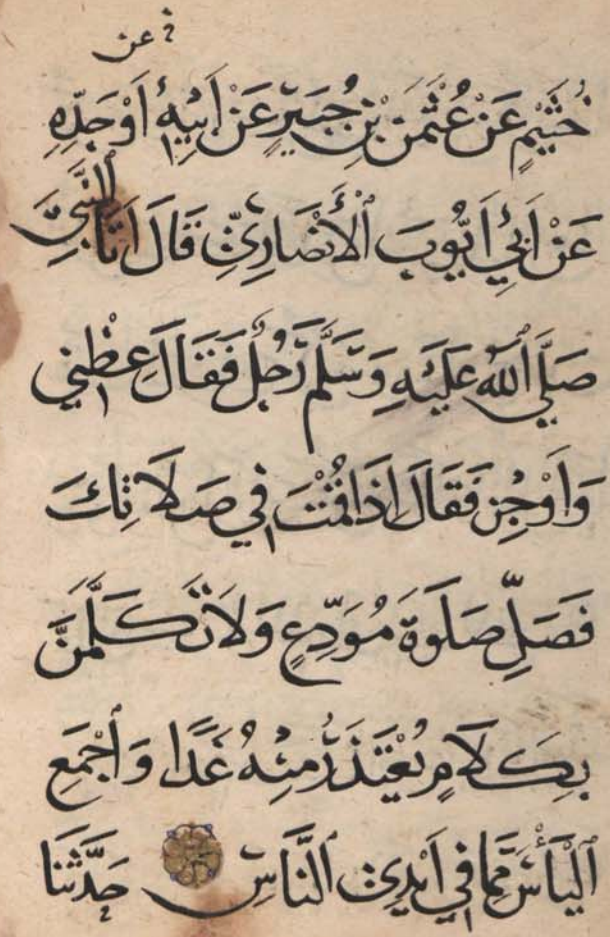 عن
خُثَيْمٍ عَنْ عُثْمَنَ بْنِ جُبَيْرٍ عَنْ اَبِيْهِ اَوْ جَدِّهِ
عَنْ اَبِيْ اَيُّوبَ الْأَنْصَارِيِّ قَالَ اَتَا النَّبِيَّ
صَلَّي اللهُ عَلَيْهِ وَسَلَّمَ رَجُلٌ فَقَالَ عِظْنِي
وَاَوْجِزْ فَقَالَ اِذَا قُمْتَ فِي صَلَاتِكَ
فَصَلِّ صَلَوةَ مُوَدِّعٍ وَلَا تَكَلَّمَنَّ
بِكَلَامٍ يُعْتَذَرُ مِنْهُ غَدًا وَاجْمَعِ
الْيَأْسَ مِمَّا فِي اَيْدِي النَّاسِ حَدَّثَنَا